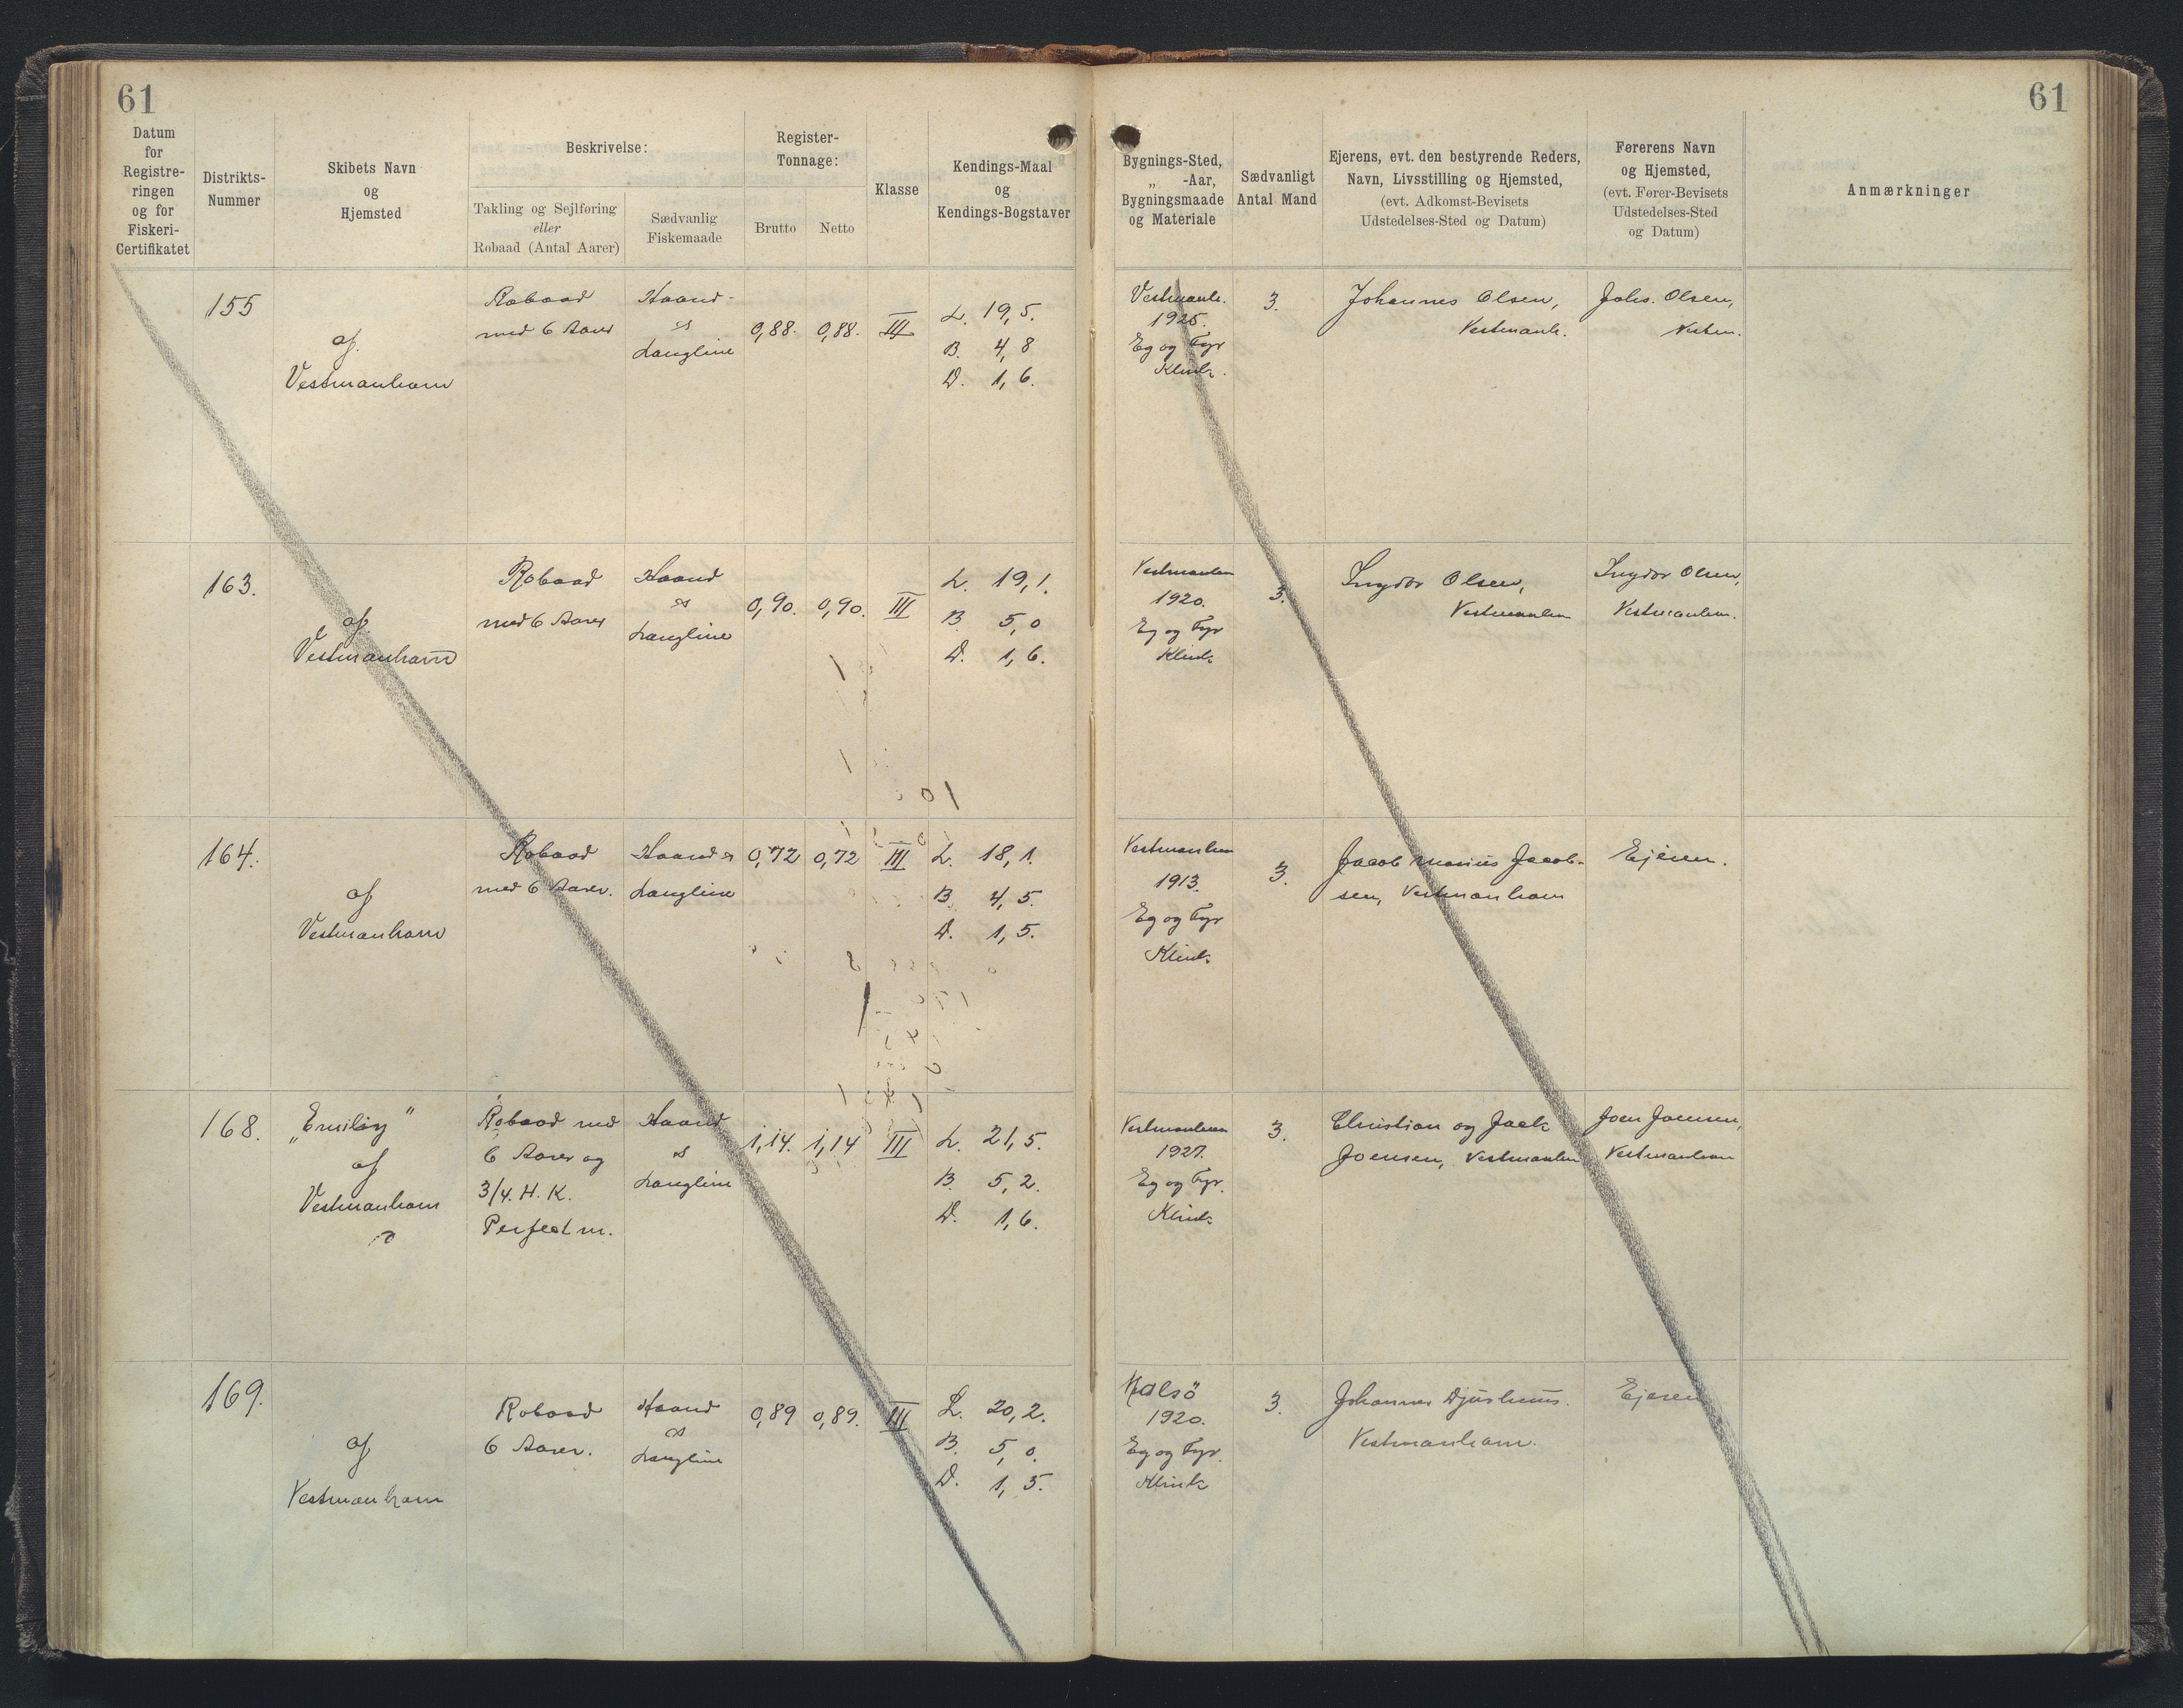 61
61
Datum
for
Registre-
ringen
og for
Fiskeri-
Certifikatet
Distrikts-
Nummer
Skibets Navn
og
Hjemsted
Beskrivelse:
Takling og Sejlføring
eller
Robaad (Antal Aarer)
Sædvanlig
Fiskemaade
Register-
Tonnage:
Brutto
Netto
Klasse
Kendings-Maal
og
Kendings-Bogstaver
Bygnings-Sted,
„ -Aar,
Bygningsmaade
og Materiale
Sædvanligt
Antal Mand
Ejerens, evt. den bestyrende Reders,
Navn, Livsstilling og Hjemsted,
(evt. Adkomst-Bevisets
Udstedelses-Sted og Datum)
Førerens Navn
og Hjemsted,
(evt. Fører-Bevisets
Udstedelses-Sted
og Datum)
Anmærkninger
155
af
Vestmanhavn
Robaad
med 6 Aarer
Haand-
&
Langline
0,88. 0,88. III
L. 19,5.
B. 4,8
D. 1,6.
Vestmanh.
1925.
Eg og Fyr
Klink.
3.
Johannes Olsen,
Vestmanh.
Johs. Olsen,
Vestm.
163.
af
Vestmanhavn
Robaad
med 6 Aarer
Haand
&
Langline
0,90. 0,90. III
L. 19,1.
B. 5,0
D. 1,6.
Vestmanhn
1920.
Eg og Fyr
Klink
3.
Ingvar Olsen,
Vestmanhn
Ingvar Olsen,
Vestmanhn.
164.
af
Vestmanhavn
Robaad
med 6 Aarer.
Haand &
Langline
0,72 0,72 III
L. 18,1.
B. 4,5.
D. 1,5.
Vestmanhn
1913.
Eg og Fyr
Klink
3.
Jacob Marius Jacob-
sen, Vestmanhavn
Ejeren.
168.
„Emiliy"
af
Vestmanhavn
Robaad med
6 Aarer og
3/4. H. K.
Perfect m.
Haand
&
Langline
1,14. 1,14 III
L. 21,5.
B. 5,2.
D. 1,6.
Vestmanhavn
1927.
Eg og Fyr.
Klink
3.
Christian og Jack
Joensen, Vestmanhn
Joen Joensen,
Vestmanhavn
169.
af
Vestmanhavn
Robaad
6 Aarer.
Haand
&
Langline
0,89 0,89. III
L. 20,2.
B. 5,0.
D. 1,5.
Nolsö
1920.
Eg og Fyr.
Klink
3.
Johannes Djurhuus.
Vestmanhavn.
Ejeren